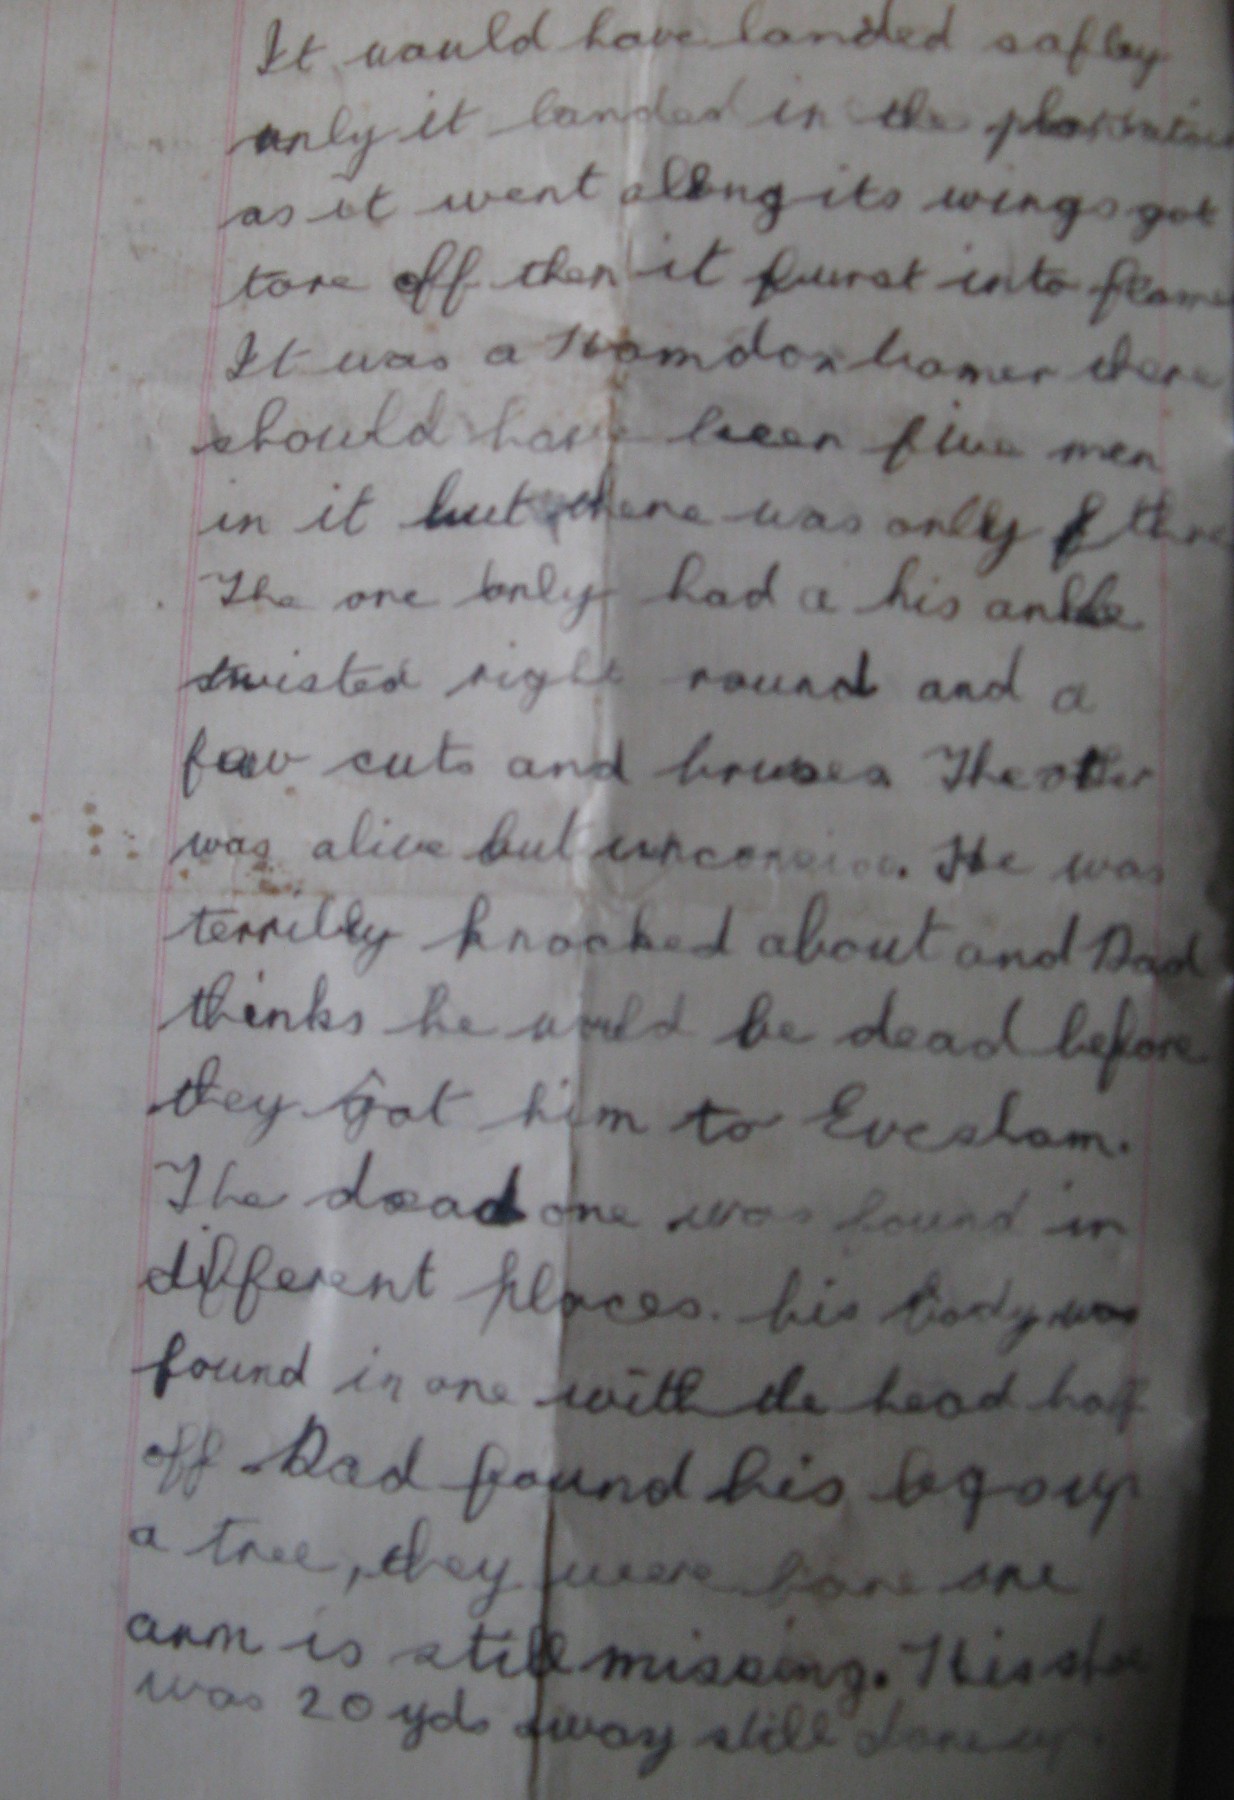 It would have landed safley
only it landed in the plantation
as it went along its wings got
tore off then it burst into flame
It was a Hamdon bomer there
should have been five men
in it but there was only three
The one only had a his ankle
twisted right round and a
few cuts and bruses The other
was alive but unconsiou. He was
terribly knocked about and Dad
thinks he would be dead before
they got him to Evesham.
The dead one was found in
different places. his body was
found in one with the head half
off Dad found his legs up
a tree, they were bare one
arm is still missing. His shoe
was 20 yds away still done up.